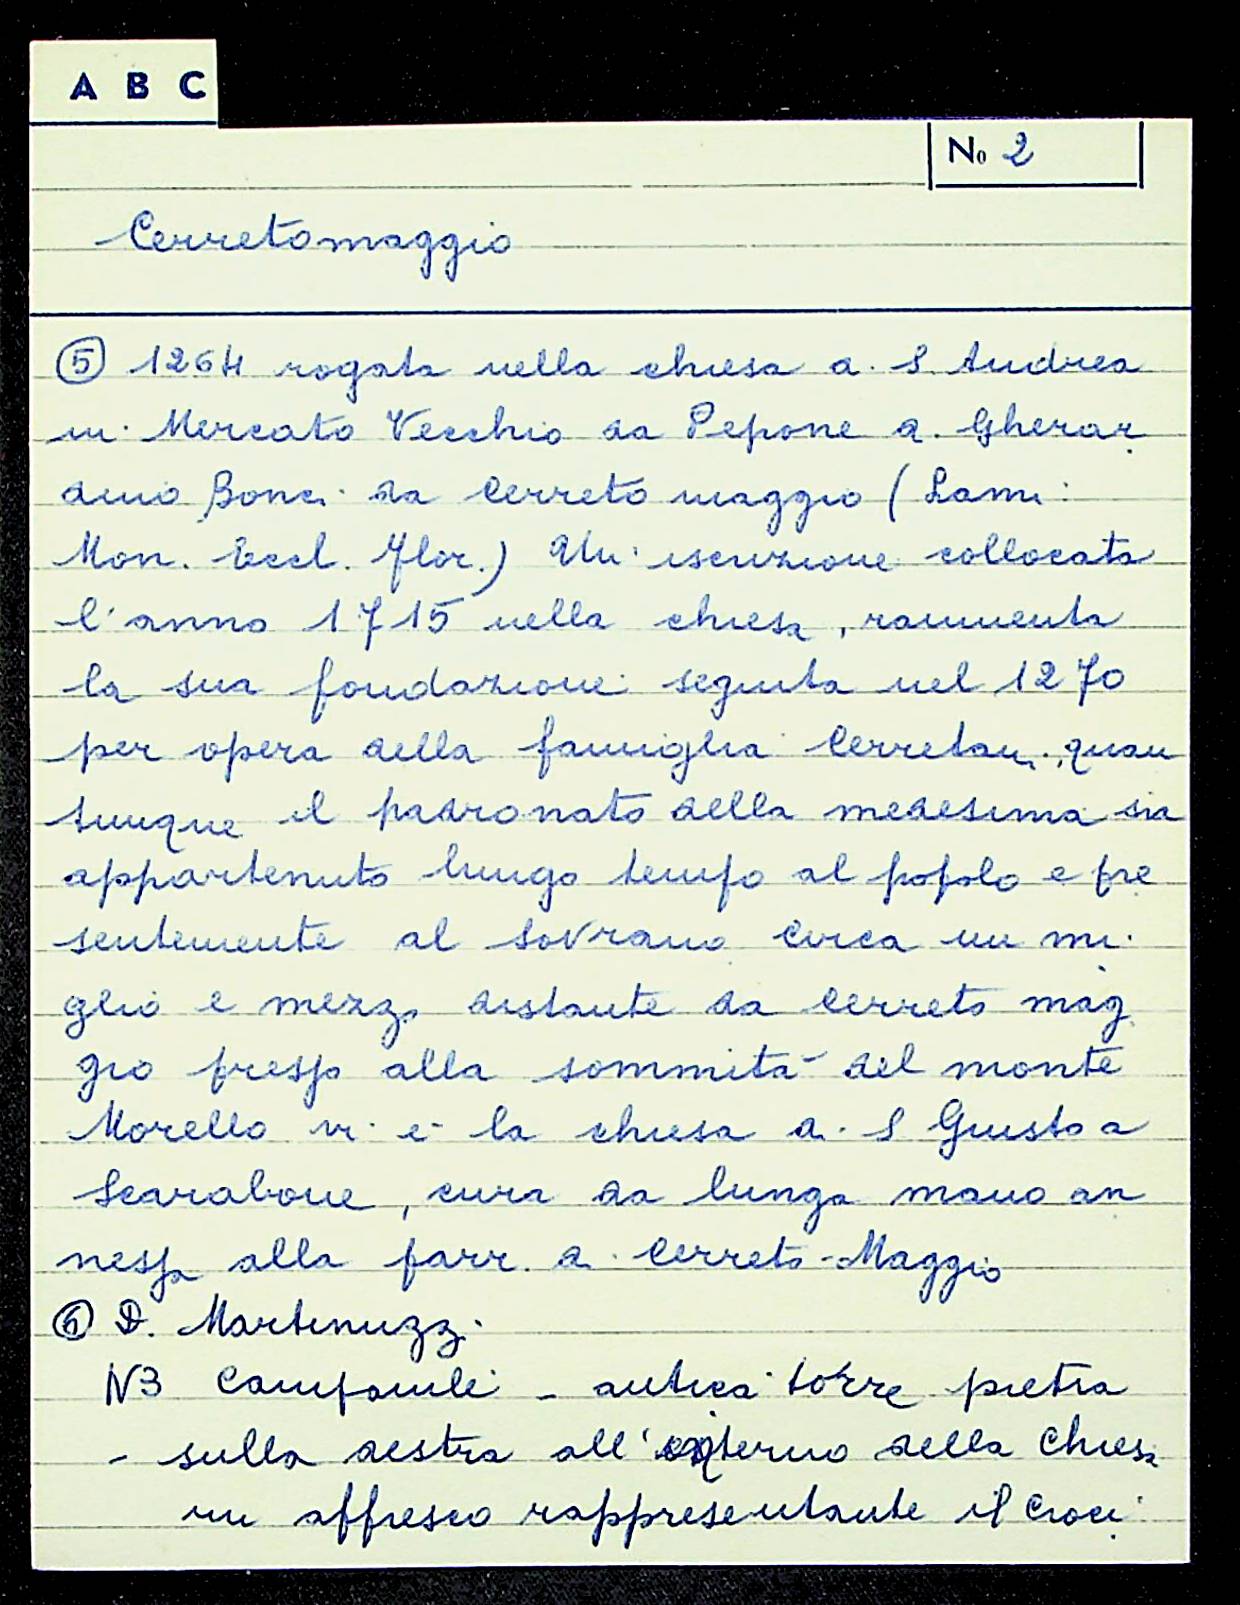 A B C
No 2
Cerretomaggio
⑤ 1264 rogata nella chiesa di S. Andrea
in Mercato Vecchio da Pepone di Gherar
dino Bonci da Cerreto maggio (Lami:
Mon. Eccl. Flor.) Un' iscrizione collocata
l'anno 1715 nella chiesa, rammenta
la sua fondazione seguita nel 1270
per opera della famiglia Cerretani, quan
tunque il padronato della medesima sia
appartenuto lungo tempo al popolo e pre
sentemente al Sovrano circa un mi
glio e mezzo distante da Cerreto mag
gio presso alla sommità del monte
Morello vi è la chiesa di S Giusto a
Scarabone, cura da lunga mano an
nessa alla parr. di Cerreto-Maggio
⑥ D. Martinuzzi
N3 Campanili - antica torre pietra
- sulla destra all'esterno della Chiesa
un affresco rappresentante il Croci